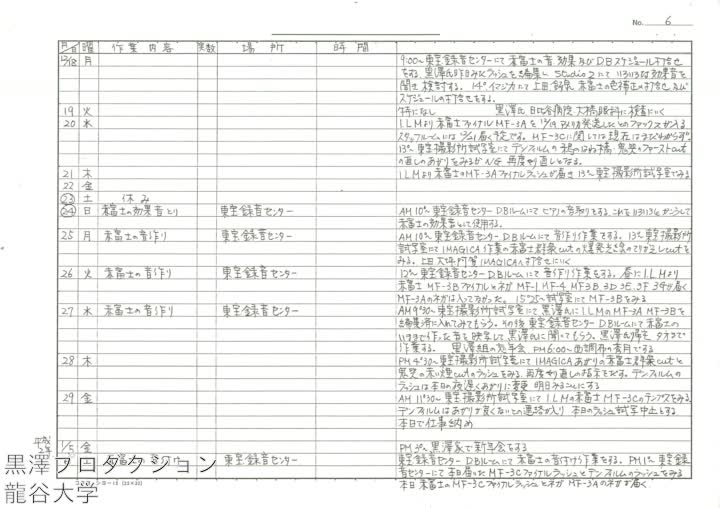 No. 6
月日 曜 作業内容 実数 場所 時間
12/18 月 9:00〜東宝録音センターにて赤富士の音効果及びDBスケジュール打合せ
をする。黒澤氏昨日みたラッシュを編集し Studio 2にていろいろな効果音を
聞き検討する。14°イマジカにて上田 飯泉 赤富士の色補正の打合せ及び
スケジュールの打合せをする。
19 火 特になし 黒澤氏 日比谷病院 大橋眼科に検査に行く
20 水 I.L.Mより赤富士ファイナル MF-3Aを12/19 発送したとのファックスが入る
スタッフルームには12/21届く予定です。MF-3Cに関しては現在はまだわからず。
13°〜東宝撮影所試写室にてデンフィルムの はね橋 鬼哭のファーストcut
の直しのあがりをみるがNG 再度やり直しとなる。
21 木 I.L.Mより赤富士のMF-3Aファイナルラッシュが届き 13°〜東宝撮影所試写室でみる
22 金
23 土 休み
24 日 赤富士の効果音とり 東宝録音センター AM10°〜東宝録音センターDBルームにてピアノの音取りをする。これをいろいろ
赤富士の効果音として使用する。
25 月 赤富士の音作り 東宝録音センター AM10°〜東宝録音センターDBルームにて音作り作業をする。13°〜東宝撮影所
試写室にてIMAGICA作業の赤富士群衆cutの爆発 cutを
みる。上田 大坪 IMAGICAへ打合せに行く
26 火 赤富士の音作り 東宝録音センター 12°〜東宝録音センターDBルームにて音作り作業をする。昼にI.L.Mより
赤富士 MF-3BファイナルとネガMF-1 MF-4 MF3B,3D 3E,3F 3Gが届く
MF-3Aのネガは入ってなかった。15°25'〜試写室にてMF-3Bをみる
27 水 赤富士の音作り 東宝録音センター AM9°30'〜東宝撮影所試写室にて黒澤氏にI.L.MのMF-3A MF-3Bを
編集済に入れてみてもらう。その後東宝録音センターDBルームにて赤富士の
いままで作った音を映写して黒澤氏に聞いてもらう。黒澤氏帰宅 夕方まで
作業する。黒澤組の忘年会 PM6:00〜西調布の香月でする
28 木 PM4°30'〜東宝撮影所試写室にてIMAGICAあがりの赤富士群衆cutと
鬼哭の赤い煙cutのラッシュをみる 再度やり直しの指示をだす。デンフィルムの
ラッシュは本日の夜遅くあがりに変更 明日みることにする
29 金 AM11°30'〜東宝撮影所試写室にてI.L.Mの赤富士MF-3Cのテンプをみる。
デンフィルムはあがりが良くないとの連絡が入り 本日のラッシュ試写中止とする
本日で仕事納め
平成2年
1/5 金 PM3°〜黒澤家で新年会をする
東宝録音センター 東宝録音センターDBルームにて赤富士の音付け作業をする。PM1°〜東宝録
音センターにて本日届いたMF-3Cファイナルラッシュとデンフィルムのラッシュをみる
本日 赤富士のMF-3Cファイナルラッシュとネガ MF-3Aのネガが届く
黒澤プロダクション
龍谷大学